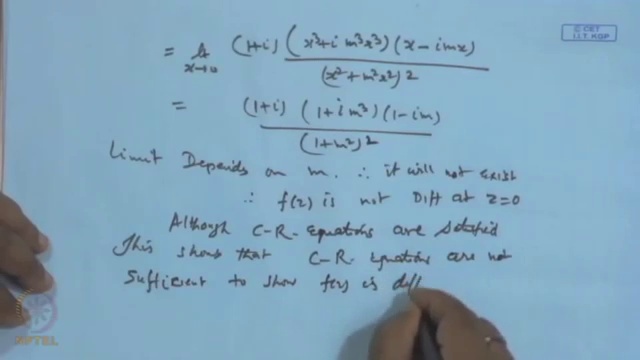 C CET
I.I.T. KGP
= lt x→0 (1+i) (x³+i m³x³) (x - imx) / (x²+m²x²)²
= (1+i) (1+i m³) (1-im) / (1+m²)²
Limit Depends on m. ∴ it will not exist
∴ f(z) is not Diff at z=0
Although C-R-Equations are Satisfied
This shows that C-R- Equations are not
Sufficient to show f(z) is diff
NPTEL